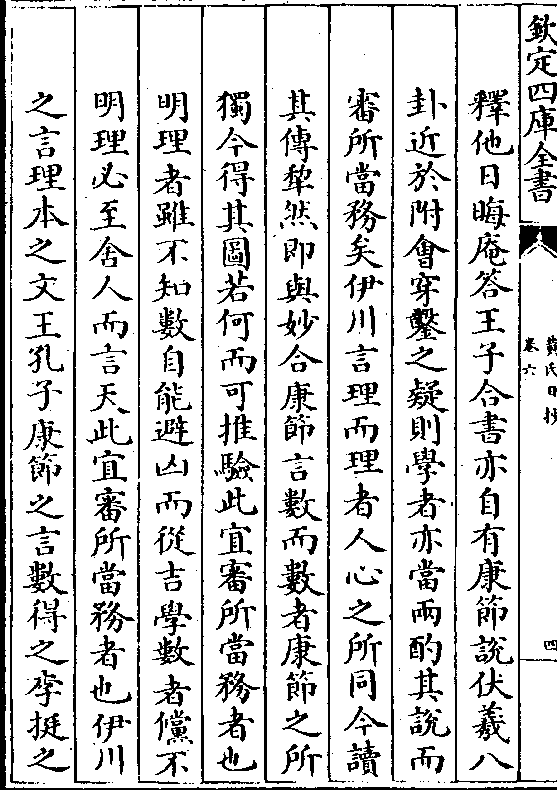 欽定四庫全書
黃氏日抄
卷六
四
釋他日晦庵答王子合書亦自有康節說伏羲八
卦近於附會穿鑿之疑則學者亦當兩酌其說而
審所當務矣伊川言理而理者人心之所同今讀
其傳犂然即與妙合康節言數而數者康節之所
獨今得其圖若何而可推驗此宜審所當務者也
明理者雖不知數自能避凶而從吉學數者儻不
明理必至舍人而言天此宜審所當務者也伊川
之言理本之文王孔子康節之言數得之李挺之